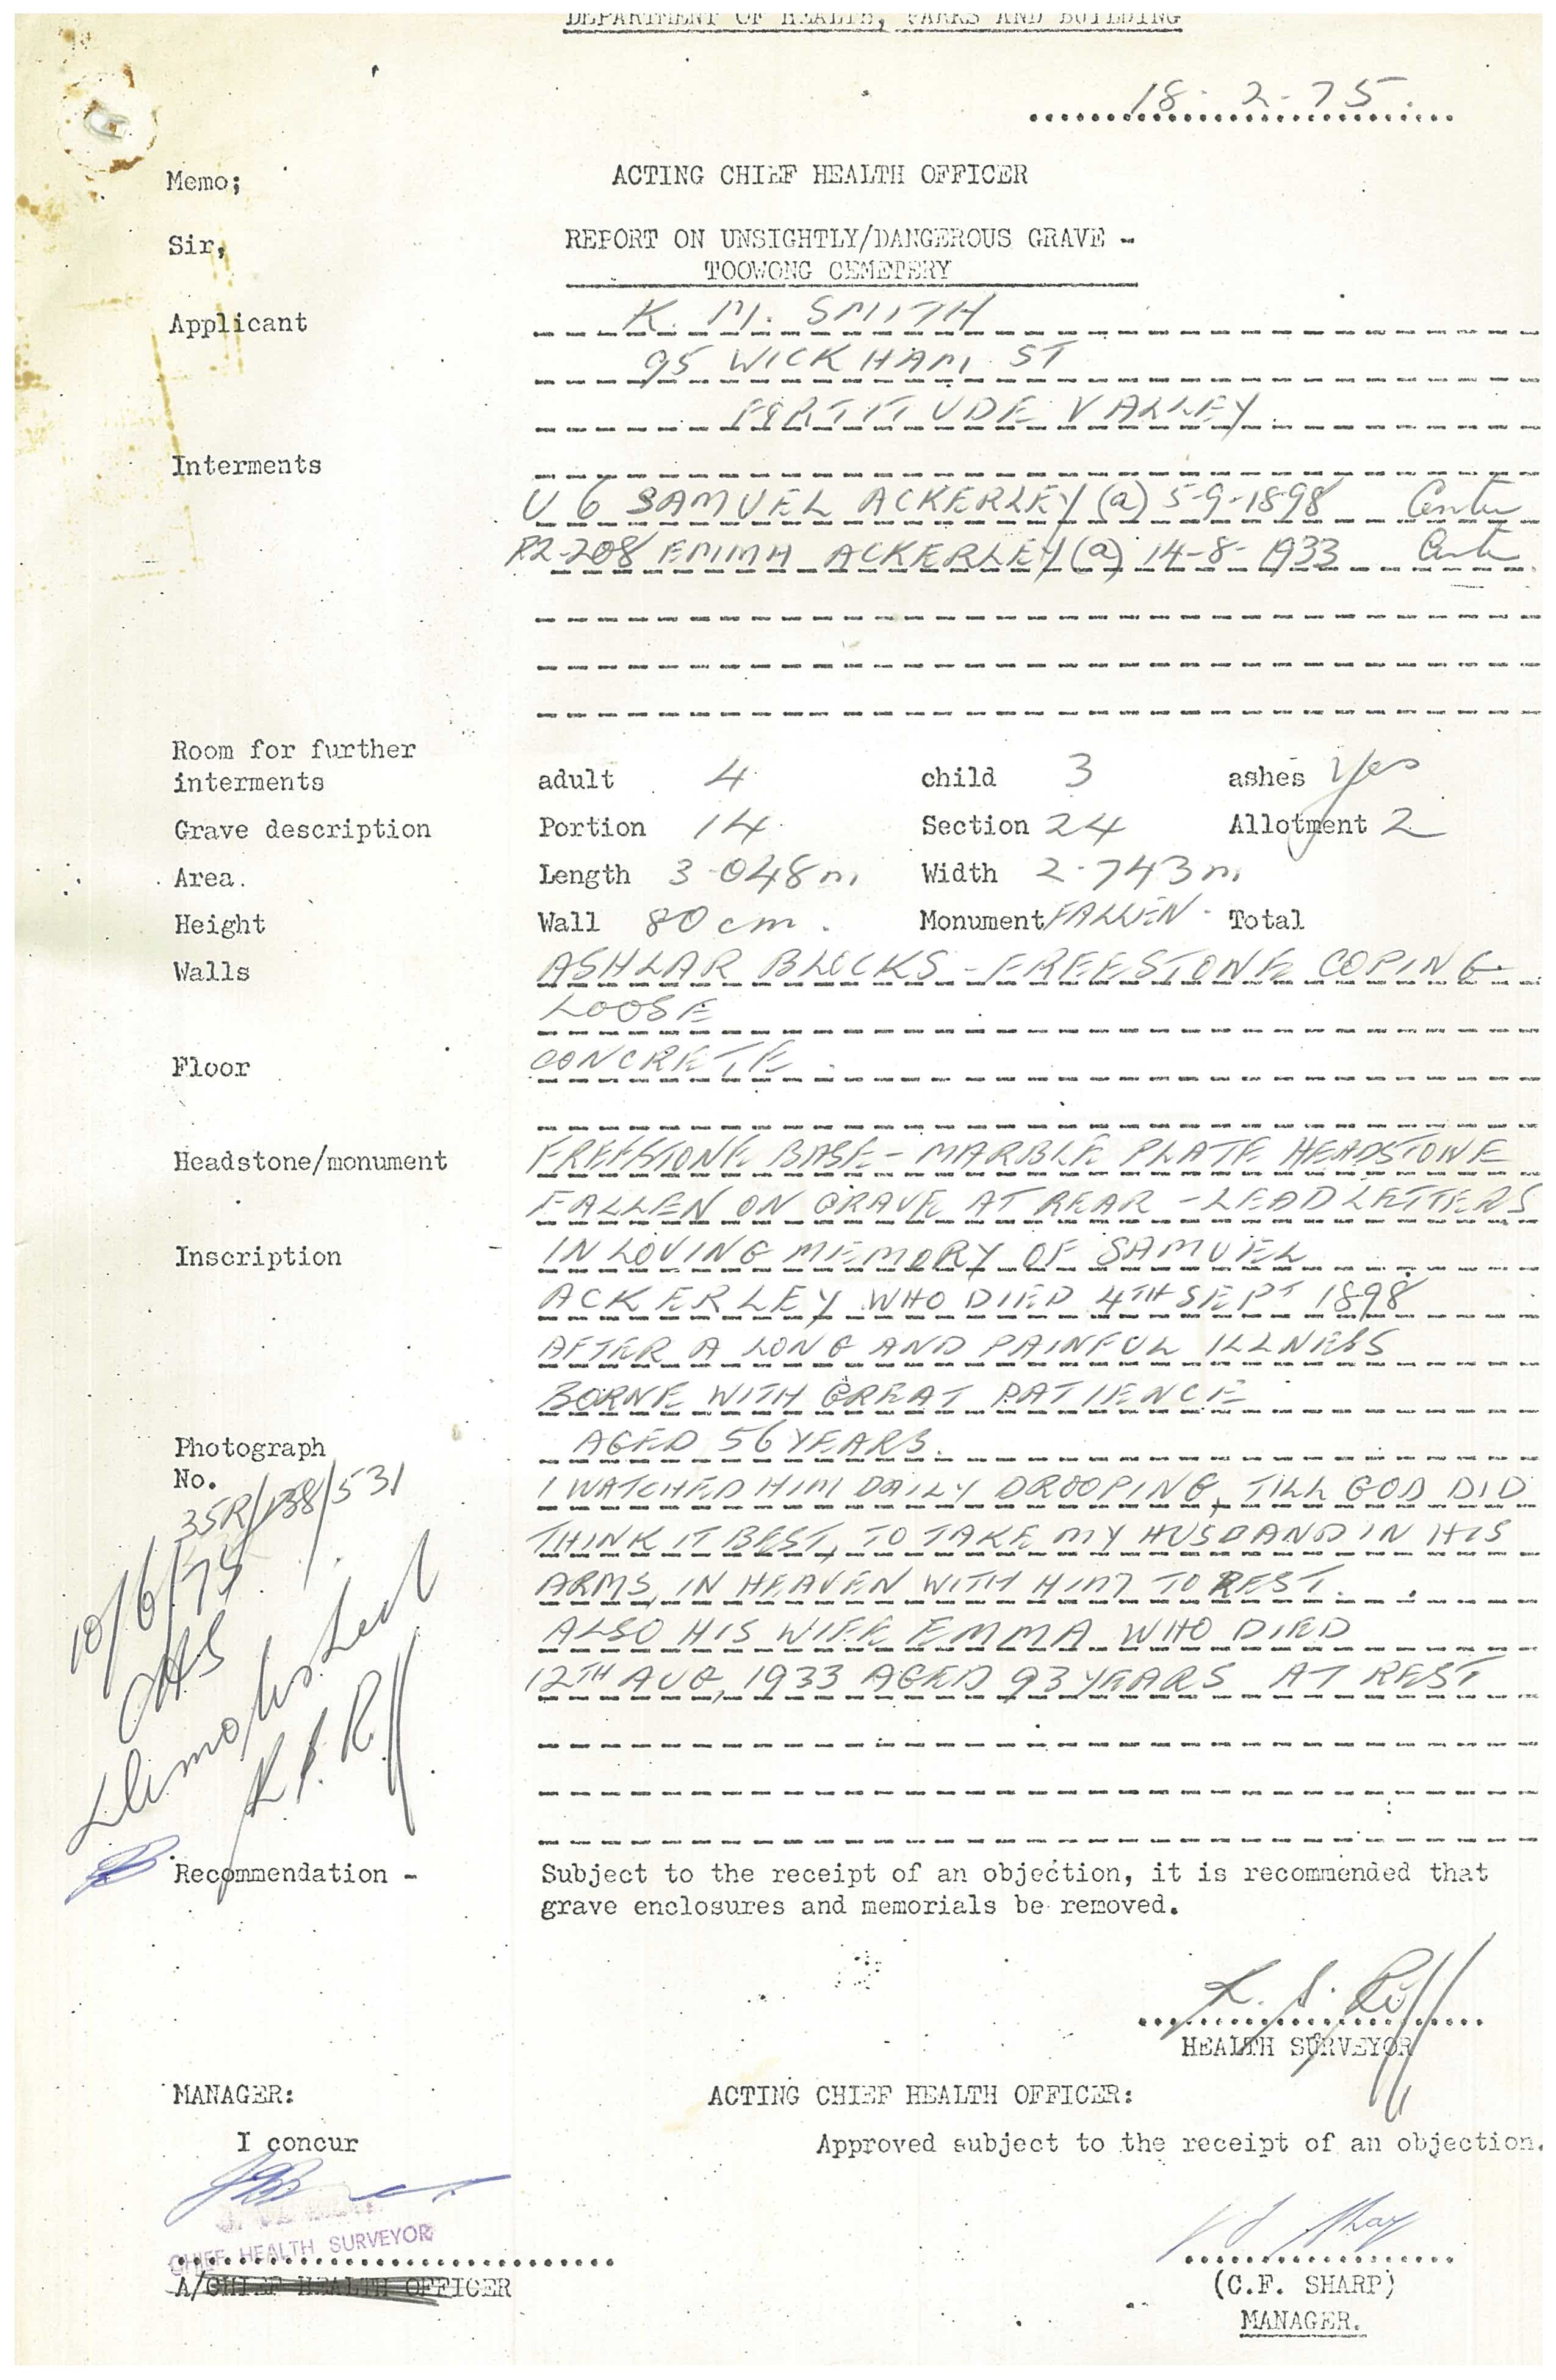 DEPARTMENT OF HEALTH, PARKS AND BUILDING
18-2-75.
Memo; ACTING CHIEF HEALTH OFFICER
Sir, REPORT ON UNSIGHTLY/DANGEROUS GRAVE -
TOOWONG CEMETERY
Applicant K. M. SMITH
95 WICKHAM ST
FORTITUDE VALLEY.
Interments
U 6 SAMUEL ACKERLEY (a) 5-9-1898 Centre
R2-208 EMMA ACKERLEY (a) 14-8-1933 Centre
Room for further
interments adult 4 child 3 ashes Yes
Grave description Portion 14 Section 24 Allotment 2
Area. Length 3.048m Width 2.743m
Height Wall 80cm. Monument FALLEN - Total
Walls ASHLAR BLOCKS - FREESTONE COPING
LOOSE
Floor CONCRETE.
Headstone/monument FREESTONE BASE - MARBLE PLATE HEADSTONE
FALLEN ON GRAVE AT REAR - LEAD LETTERS
Inscription IN LOVING MEMORY OF SAMUEL
ACKERLEY WHO DIED 4TH SEPT 1898
AFTER A LONG AND PAINFUL ILLNESS
BORNE WITH GREAT PATIENCE
Photograph AGED 56 YEARS.
No. I WATCHED HIM DAILY DROOPING, TILL GOD DID
35R/138/531
THINK IT BEST, TO TAKE MY HUSBAND IN HIS
ARMS, IN HEAVEN WITH HIM TO REST.
10/6/75
ALSO HIS WIFE EMMA WHO DIED
12TH AUG, 1933 AGED 93 YEARS AT REST
Demolished
Recommendation - Subject to the receipt of an objection, it is recommended that
grave enclosures and memorials be removed.
HEALTH SURVEYOR
MANAGER: ACTING CHIEF HEALTH OFFICER:
I concur Approved subject to the receipt of an objection.
CHIEF HEALTH SURVEYOR
A/CHIEF HEALTH OFFICER (C.F. SHARP)
MANAGER.